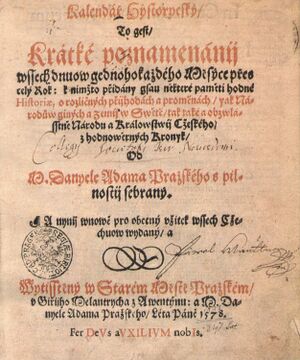 Kalendář Hystorycský/
To gest/
Krátké poznamenánij
wssech dnuow gednohokaždého Měsýce přes
celý Rok: k nimžto přidány gsau některé paměti hodné
Historiæ, o rozličných příhodách a proměnách/ yak Ná-
roduow giných a Zemij w Swětě/ tak také a obzwlá-
sstně Národu a Králowstwij Cžeského/
z hodnowěrných Kronyk/
Od
M. Danyele Adama Pražského s pil-
nostij sebrany.
A nynij wnowě pro obecný vžitek wssech Cže-
chuow wydany/ a
Wytisstěný w Starém Městě Pražském/
v Giřijho Melantrycha z Awentýnu: a M. Da-
nyele Adama Pražského/ Léta Páně 1578.
Fer DeVs aVXILIVM nobIs.